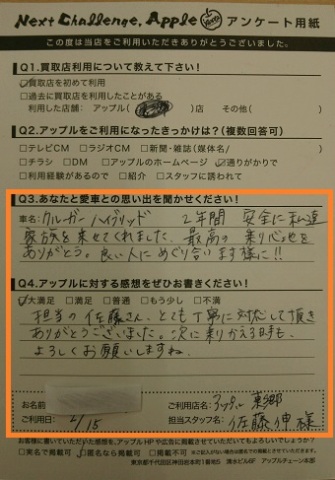 Next Challenge, Apple アンケート用紙
この度は当店をご利用いただきありがとうございました。
Q1.買取店利用について教えて下さい!
☑買取店を初めて利用
□過去に買取店を利用したことがある
利用した店舗: アップル( )店 その他( )
Q2.アップルをご利用になったきっかけは?(複数回答可)
□テレビCM □ラジオCM □新聞・雑誌(媒体名/ )
□チラシ □DM □アップルのホームページ ☑通りがかりで
□利用経験があるので □紹介 □スタッフに誘われて
Q3.あなたと愛車との思い出を聞かせください!
車名: クルーガーハイブリッド 2年間 安全に私達
家族を乗せてくれました。最高の乗り心地を
ありがとう。良い人にめぐり逢います様に!!
Q4.アップルに対する感想をぜひお書きください!
☑大満足 □満足 □普通 □もう少し □不満
担当の佐藤さん、とても丁寧に対応して頂き
ありがとうございました。次に乗りかえる時も、
よろしくお願いしますね。
お名前
ご利用店名: アップル 東郷
ご利用日: 2/15
担当スタッフ名: 佐藤伸様
お客様に書いていただいた感想を、アップルHPや広告に掲載させていただいてもよろしいでしょうか?
□実名で掲載可 ☑匿名なら掲載可 □不可
東京都千代田区神田総本町1番地5 清水ビル4F アップルチェーン本部